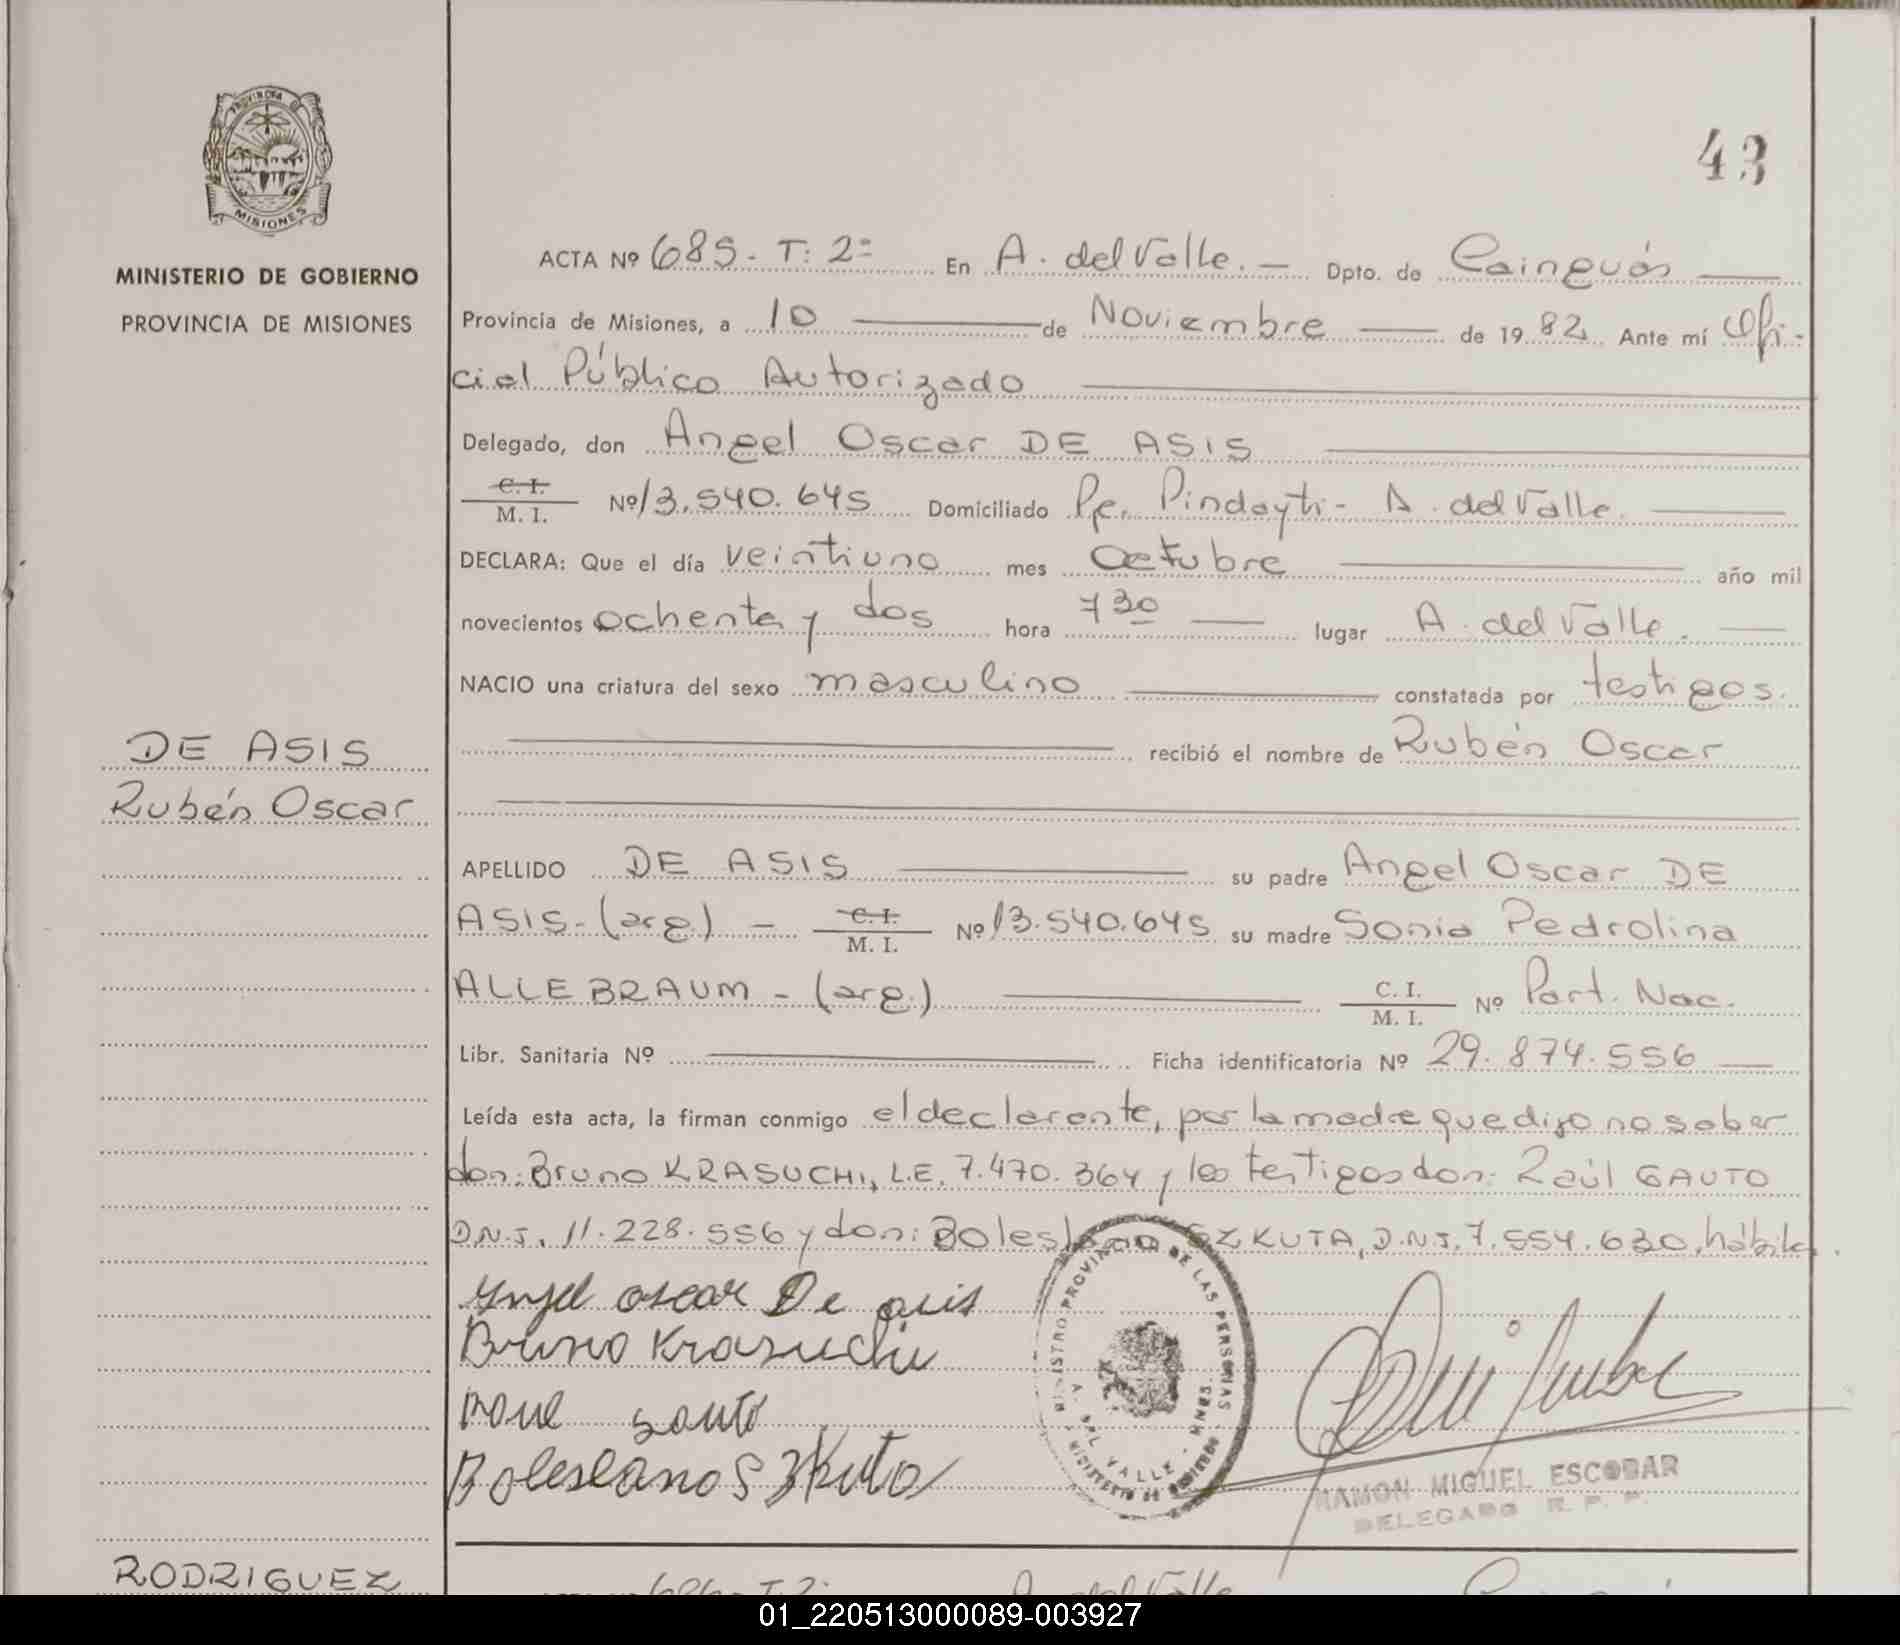 PROVINCIA DE
MISIONES
MINISTERIO DE GOBIERNO
PROVINCIA DE MISIONES
43
ACTA Nº 685 - T: 2º En A. del Valle. — Dpto. de Cainguás
Provincia de Misiones, a 10 de Noviembre de 1982 Ante mí Ofi-
cial Público Autorizado
Delegado, don Angel Oscar DE ASIS
C. I. / M. I. Nº 13.540.645 Domiciliado Pje. Pindayti - A. del Valle.
DECLARA: Que el día veintiuno mes Octubre año mil
novecientos ochenta y dos hora 7 30 lugar A. del Valle.
NACIO una criatura del sexo masculino constatada por testigos.
recibió el nombre de Rubén Oscar
DE ASIS
Rubén Oscar
APELLIDO DE ASIS su padre Angel Oscar DE
ASIS - (arg.) - C. I. / M. I. Nº 13.540.645 su madre Sonia Pedrolina
ALLEBRAUM - (arg.) C. I. / M. I. Nº Part. Nac.
Libr. Sanitaria Nº Ficha identificatoria Nº 29.874.556
Leída esta acta, la firman conmigo el declarante, por la madre que dijo no saber
don: Bruno KRASUCHI, L.E. 7.470.364 y los testigos don: Raúl GAUTO
D.N.I. 11.228.556 y don: Boleslano SZKUTA, D.N.I. 7.554.630, hábiles.
Angel oscar De asis
Bruno Krasuchi
Raul Gauto
Boleslano Szkuta
REGISTRO PROVINCIAL DE LAS PERSONAS
A. DEL VALLE - MNES.
MINISTERIO DE GOBIERNO
RAMON MIGUEL ESCOBAR
DELEGADO R. P. P.
RODRIGUEZ
686 - T. 2: A. del Valle
01_220513000089-003927